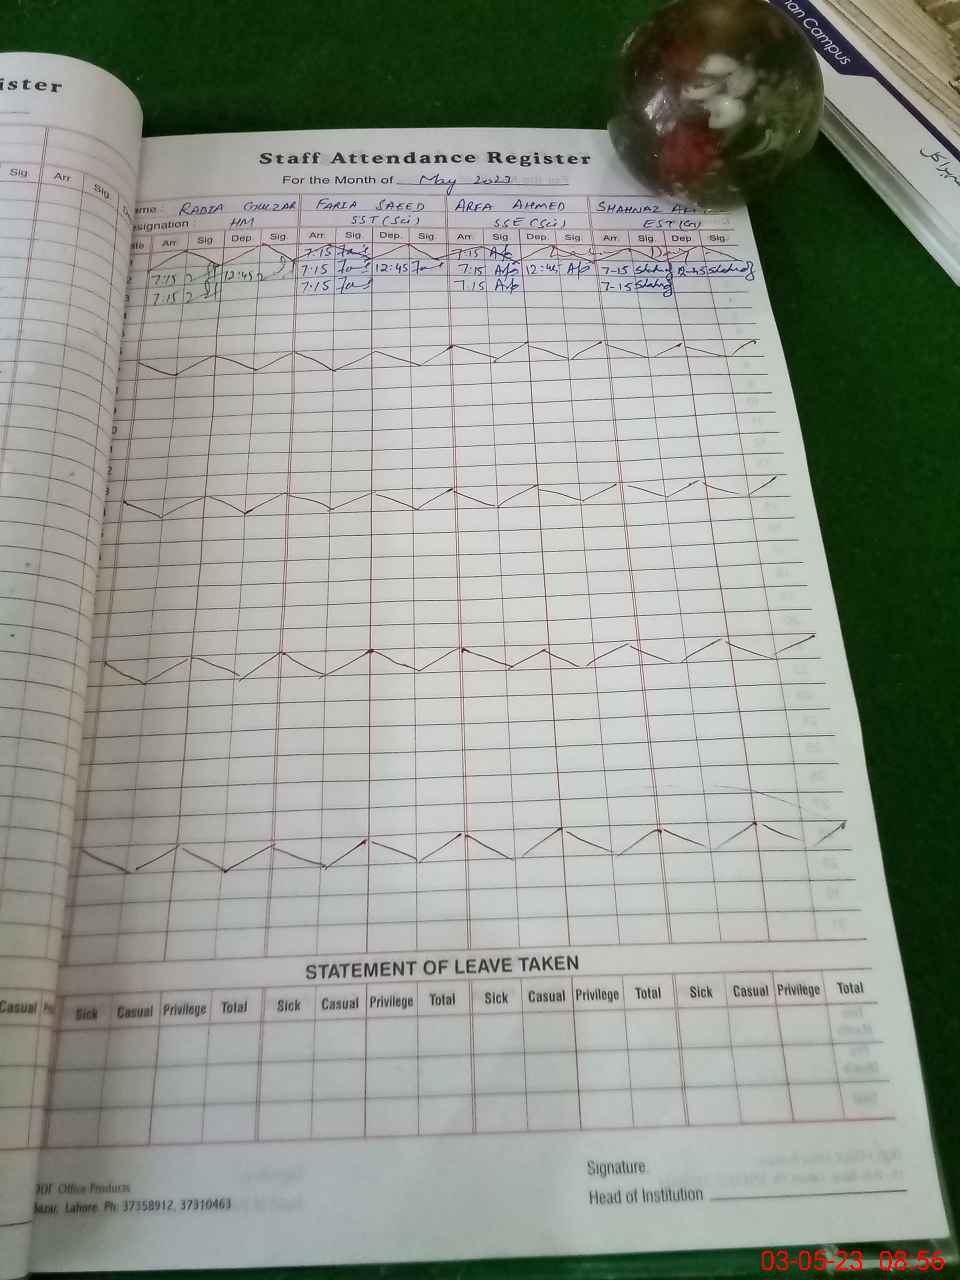 ister
Staff Attendance Register
For the Month of May 2023
ame: RABIA GULZAR FARIA SAEED ARFA AHMED SHAHNAZ
esignation HM SST (Sci) SSE (Sci) EST (G)
Sig. Arr. Sig. ate Arr. Sig. Dep. Sig. Arr. Sig. Dep. Sig. Arr. Sig. Dep. Sig. Arr. Sig. Dep. Sig.
7:15 7:15
7:15 12:45 7:15 12:45 7:15 12:45 7-15 12-45
7:15 7:15 7.15 7-15
STATEMENT OF LEAVE TAKEN
Casual Sick Casual Privilege Total Sick Casual Privilege Total Sick Casual Privilege Total Sick Casual Privilege Total
Signature
Head of Institution
Office Products
Bazar, Lahore. Ph: 37358912, 37310463
an Campus
03-05-23 08:56